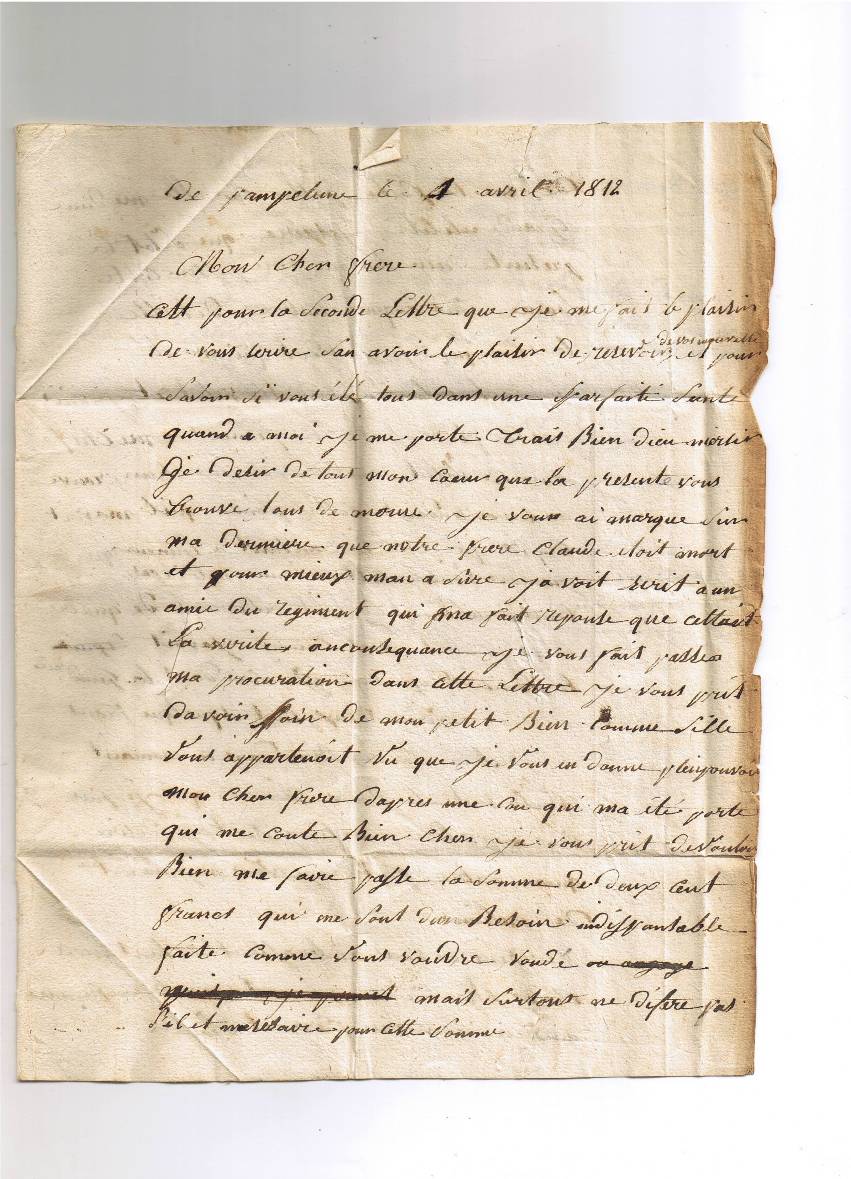 De pampelune le 4 avril 1812
Mon Cher frere
cest pour la seconde Lettre que je me fais le plaisir
de vous ecrire san avoir le plaisir de resevoir de vos nouvelle et pour
savoir si vous été tous dans une parfaite sante
quand a moi je me porte trais Bien dieu mersir
Je desir de tous mon coeur que la presente vous
trouve tous de mome je vous ai marque sur
ma derniere que notre frere Claude etoit mort
et pour mieux man a sure javoit ecrit a un
amie du regiment qui ma fait reponse que cettait
La verite anconsequance je vous fait passe
ma procuration dans cette Lettre je vous prit
davoir soin de mon petit Bien comme sille
vous appartenoit vu que je vous en donne plenpouvoir
mon cher frere dapres une cou qui ma été porte
qui me coute Bien cher je vous prit de vouloir
Bien me faire passe la somme de deux cent
francs qui me sont dun Besoin indispansable
faite comme vous voudre vandé ou angage
mais surtous ne difere pas
s'il et nesesaire pour cette somme